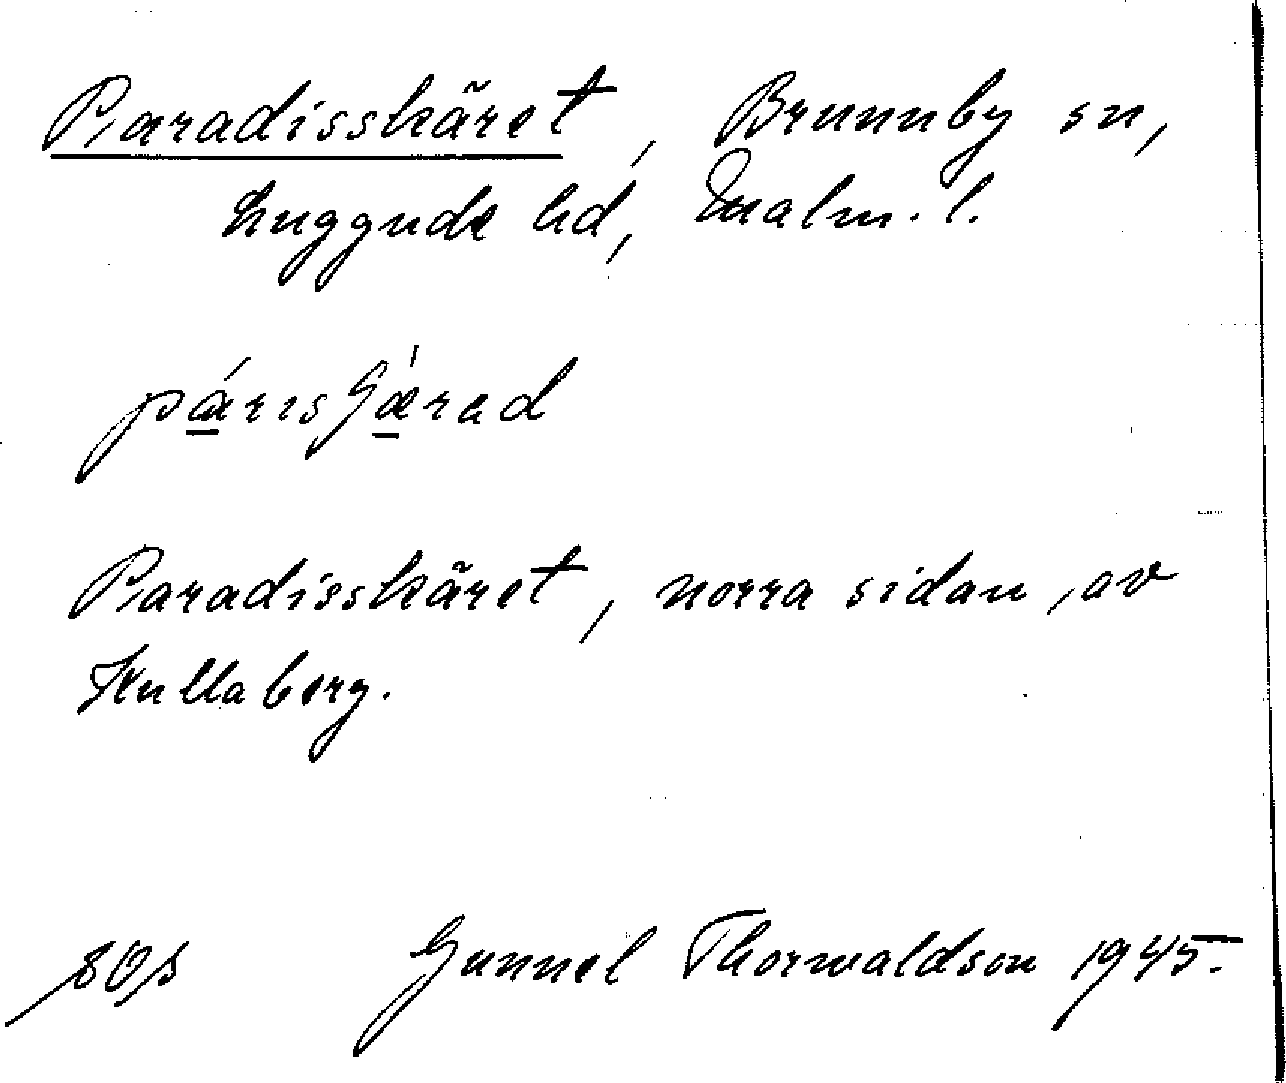 Paradisskäret, Brunnby sn,
Luggude hd, Malm. l.
Paradisskäret, norra sidan, av
Kullaberg.
Gunnel Thorwaldson 1945.